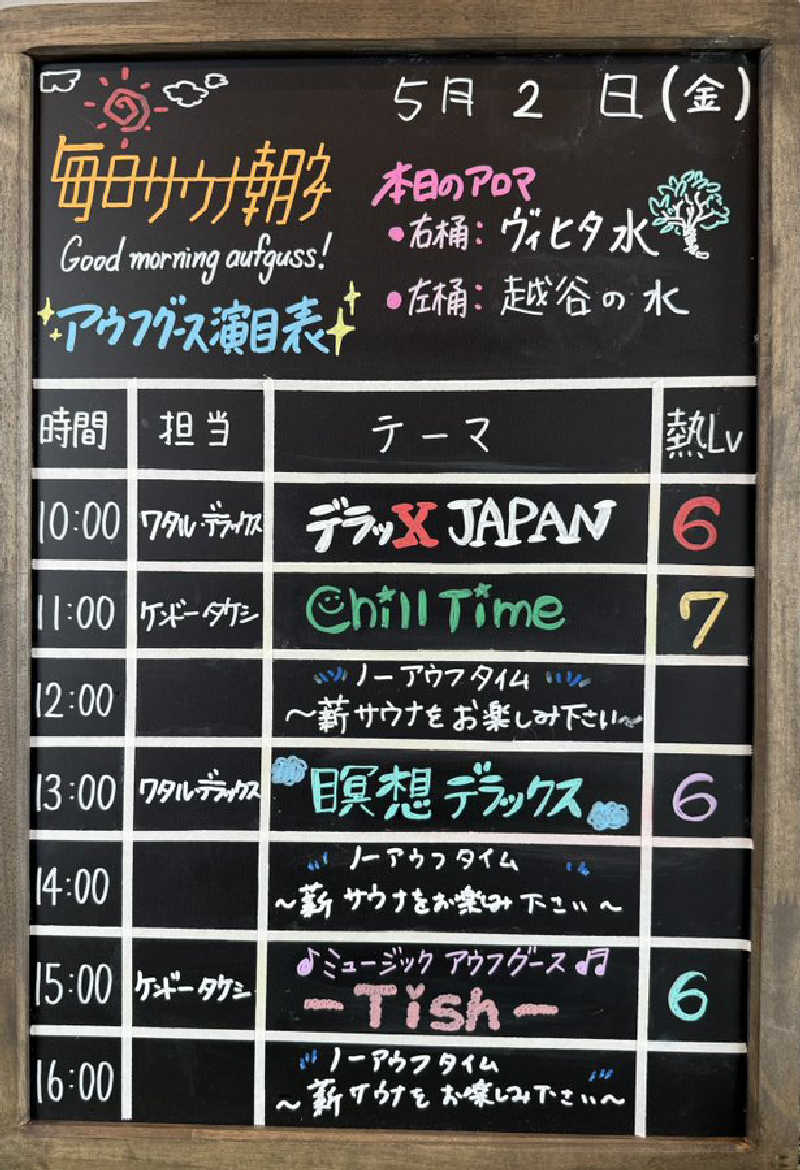 5月 2 日(金)
毎日サウナ朝タ
Good morning aufguss!
アウフグース演目表
本日のアロマ
・右桶: ヴィヒタ水
・左桶: 越谷の水
時間 担当 テーマ 熱Lv
10:00 ワタル・デラックス デラッX JAPAN 6
11:00 ケンドータケシ Chill Time 7
12:00 ノーアウフタイム
～薪サウナをお楽しみ下さい～
13:00 ワタル・デラックス 瞑想デラックス 6
14:00 ノーアウフタイム
～薪サウナをお楽しみ下さい～
15:00 ケンドータケシ ♪ミュージック アウフグース♬
-Tish- 6
16:00 ノーアウフタイム
～薪サウナをお楽しみ下さい～